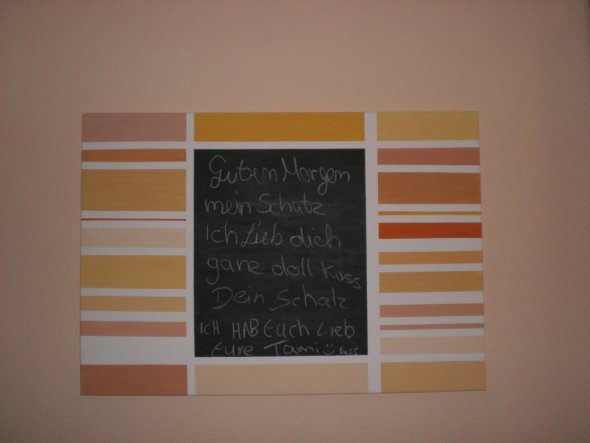 Guten Morgen
mein Schatz
Ich Lieb dich
ganz doll Kuss
Dein Schatz
ICH HAB Euch Lieb
Eure Tami